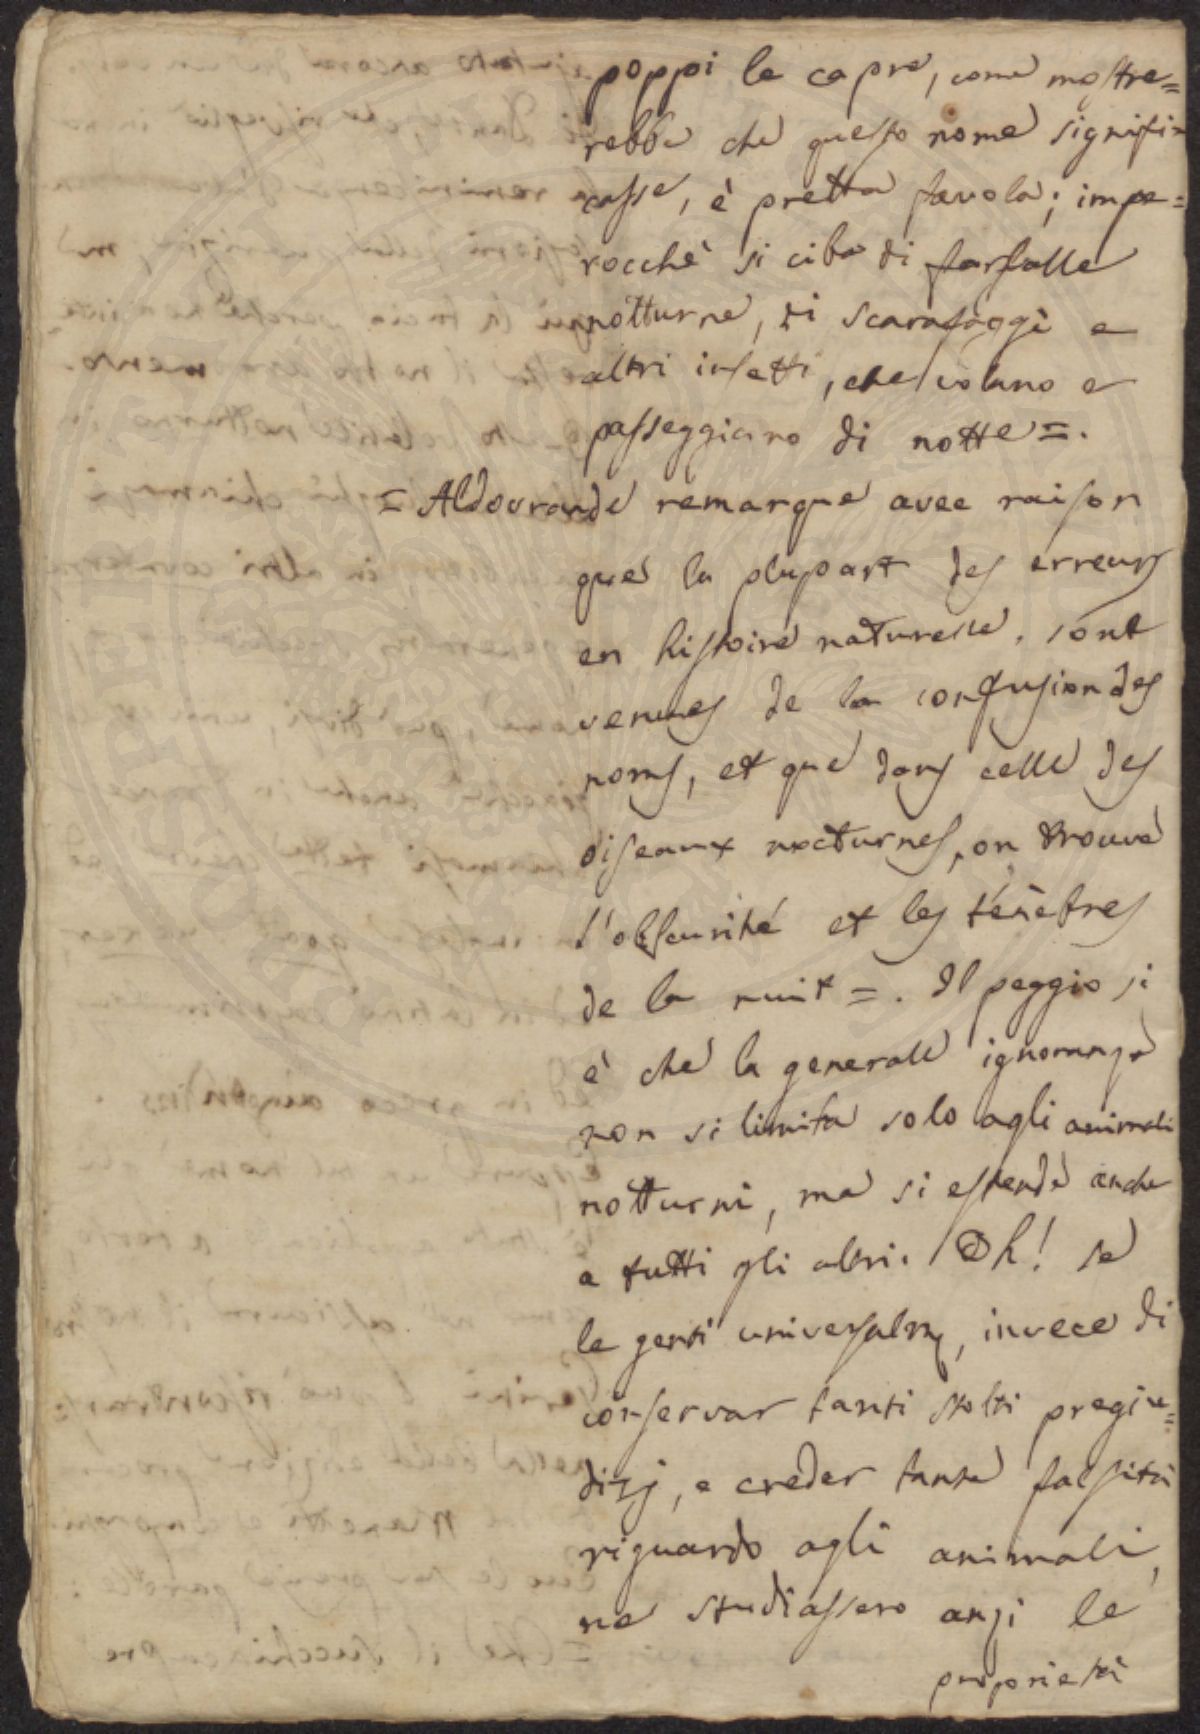 poppi le capre, come mostre=
rebbe che questo nome signifi=
casse, è pretta favola; impe=
rocchè si ciba di farfalle
notturne, di scarafaggi e
altri insetti, che volano e
passeggiano di notte =.
= Aldovrande remarque avec raison
que la plupart des erreurs
en histoire naturelle, sont
venues de la confusion des
noms, et que dans celle des
oiseaux nocturnes, on trouve
l'obscurité et les ténèbres
de la nuit =. Il peggio si
è che la generale ignoranza
non si limita solo agli animali
notturni, ma si estende anche
a tutti gli altri. Oh! se
le genti universalm, invece di
conservar tanti stolti pregiu=
dizj, e creder tante falsità
riguardo agli animali,
ne studiassero anzi le
proprietà